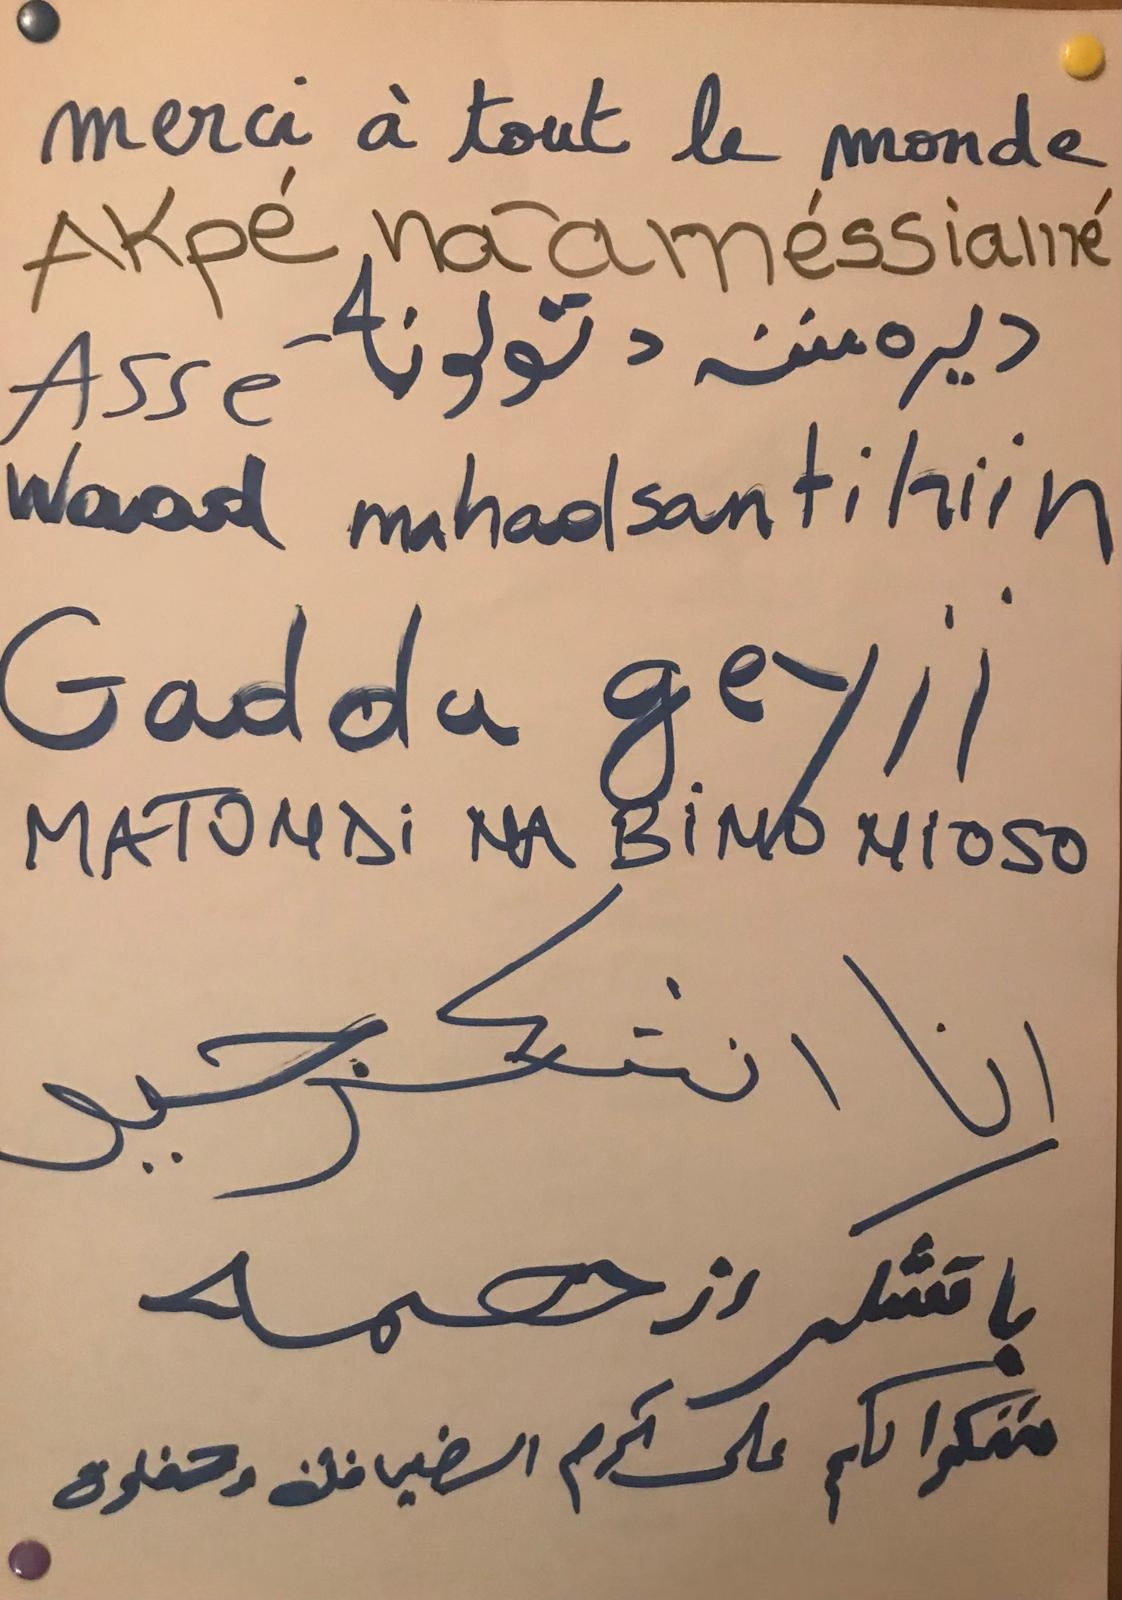 merci à tout le monde
AKpé na améssiamé
Asse دیره مننه د ټولونه
Waad mahadsantihiin
Gadda geyii
MATONDi NA BiNO NIOSO
انا اتشكر جميع
با تشکر از همه
شكرا لكم على كرم الضيافة وحفاوة